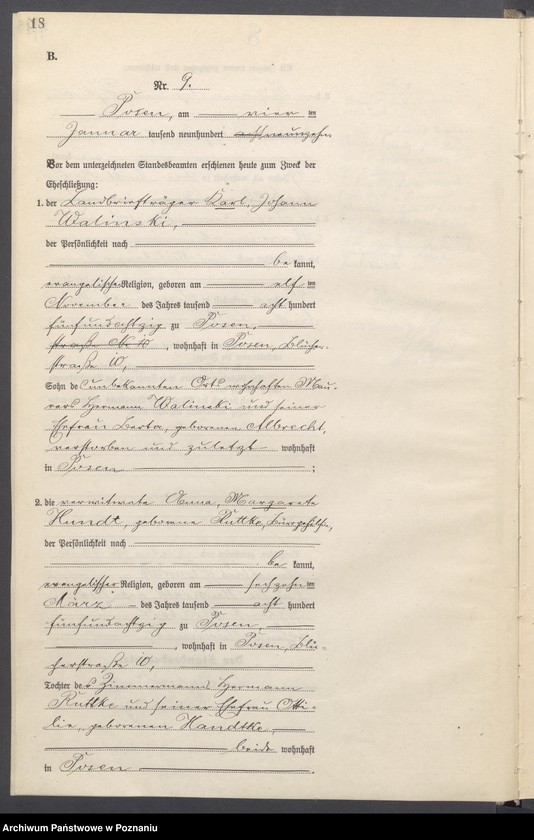 18
B.
Nr. 9.
Posen, am vier ten
Januar tausend neunhundert achtneunzehn
Vor dem unterzeichneten Standesbeamten erschienen heute zum Zweck der
Eheschließung:
1. der Landbriefträger Karl, Johann
Walinski,
der Persönlichkeit nach
be kannt,
evangelischer Religion, geboren am elf ten
November des Jahres tausend acht hundert
fünfundachtzig zu Posen,
straße No 10, wohnhaft in Posen, Blücher-
straße 10,
Sohn des unbekannten Orts wohnhaften Mau-
rers Hermann Walinski und seiner
Ehefrau Berta, geborenen Albrecht,
verstorben und zuletzt wohnhaft
in Posen ;
2. die verwitwete Anna, Margarete
Hundt, geborene Ruttke, Bürogehilfin,
der Persönlichkeit nach
be kannt,
evangelischer Religion, geboren am sechzehn ten
März des Jahres tausend acht hundert
fünfundachtzig zu Posen,
, wohnhaft in Posen, Blü-
cherstraße 10,
Tochter des Zimmermanns Hermann
Ruttke und seiner Ehefrau Otti-
lie, geborenen Handtke,
beide wohnhaft
in Posen .
Archiwum Państwowe w Poznaniu